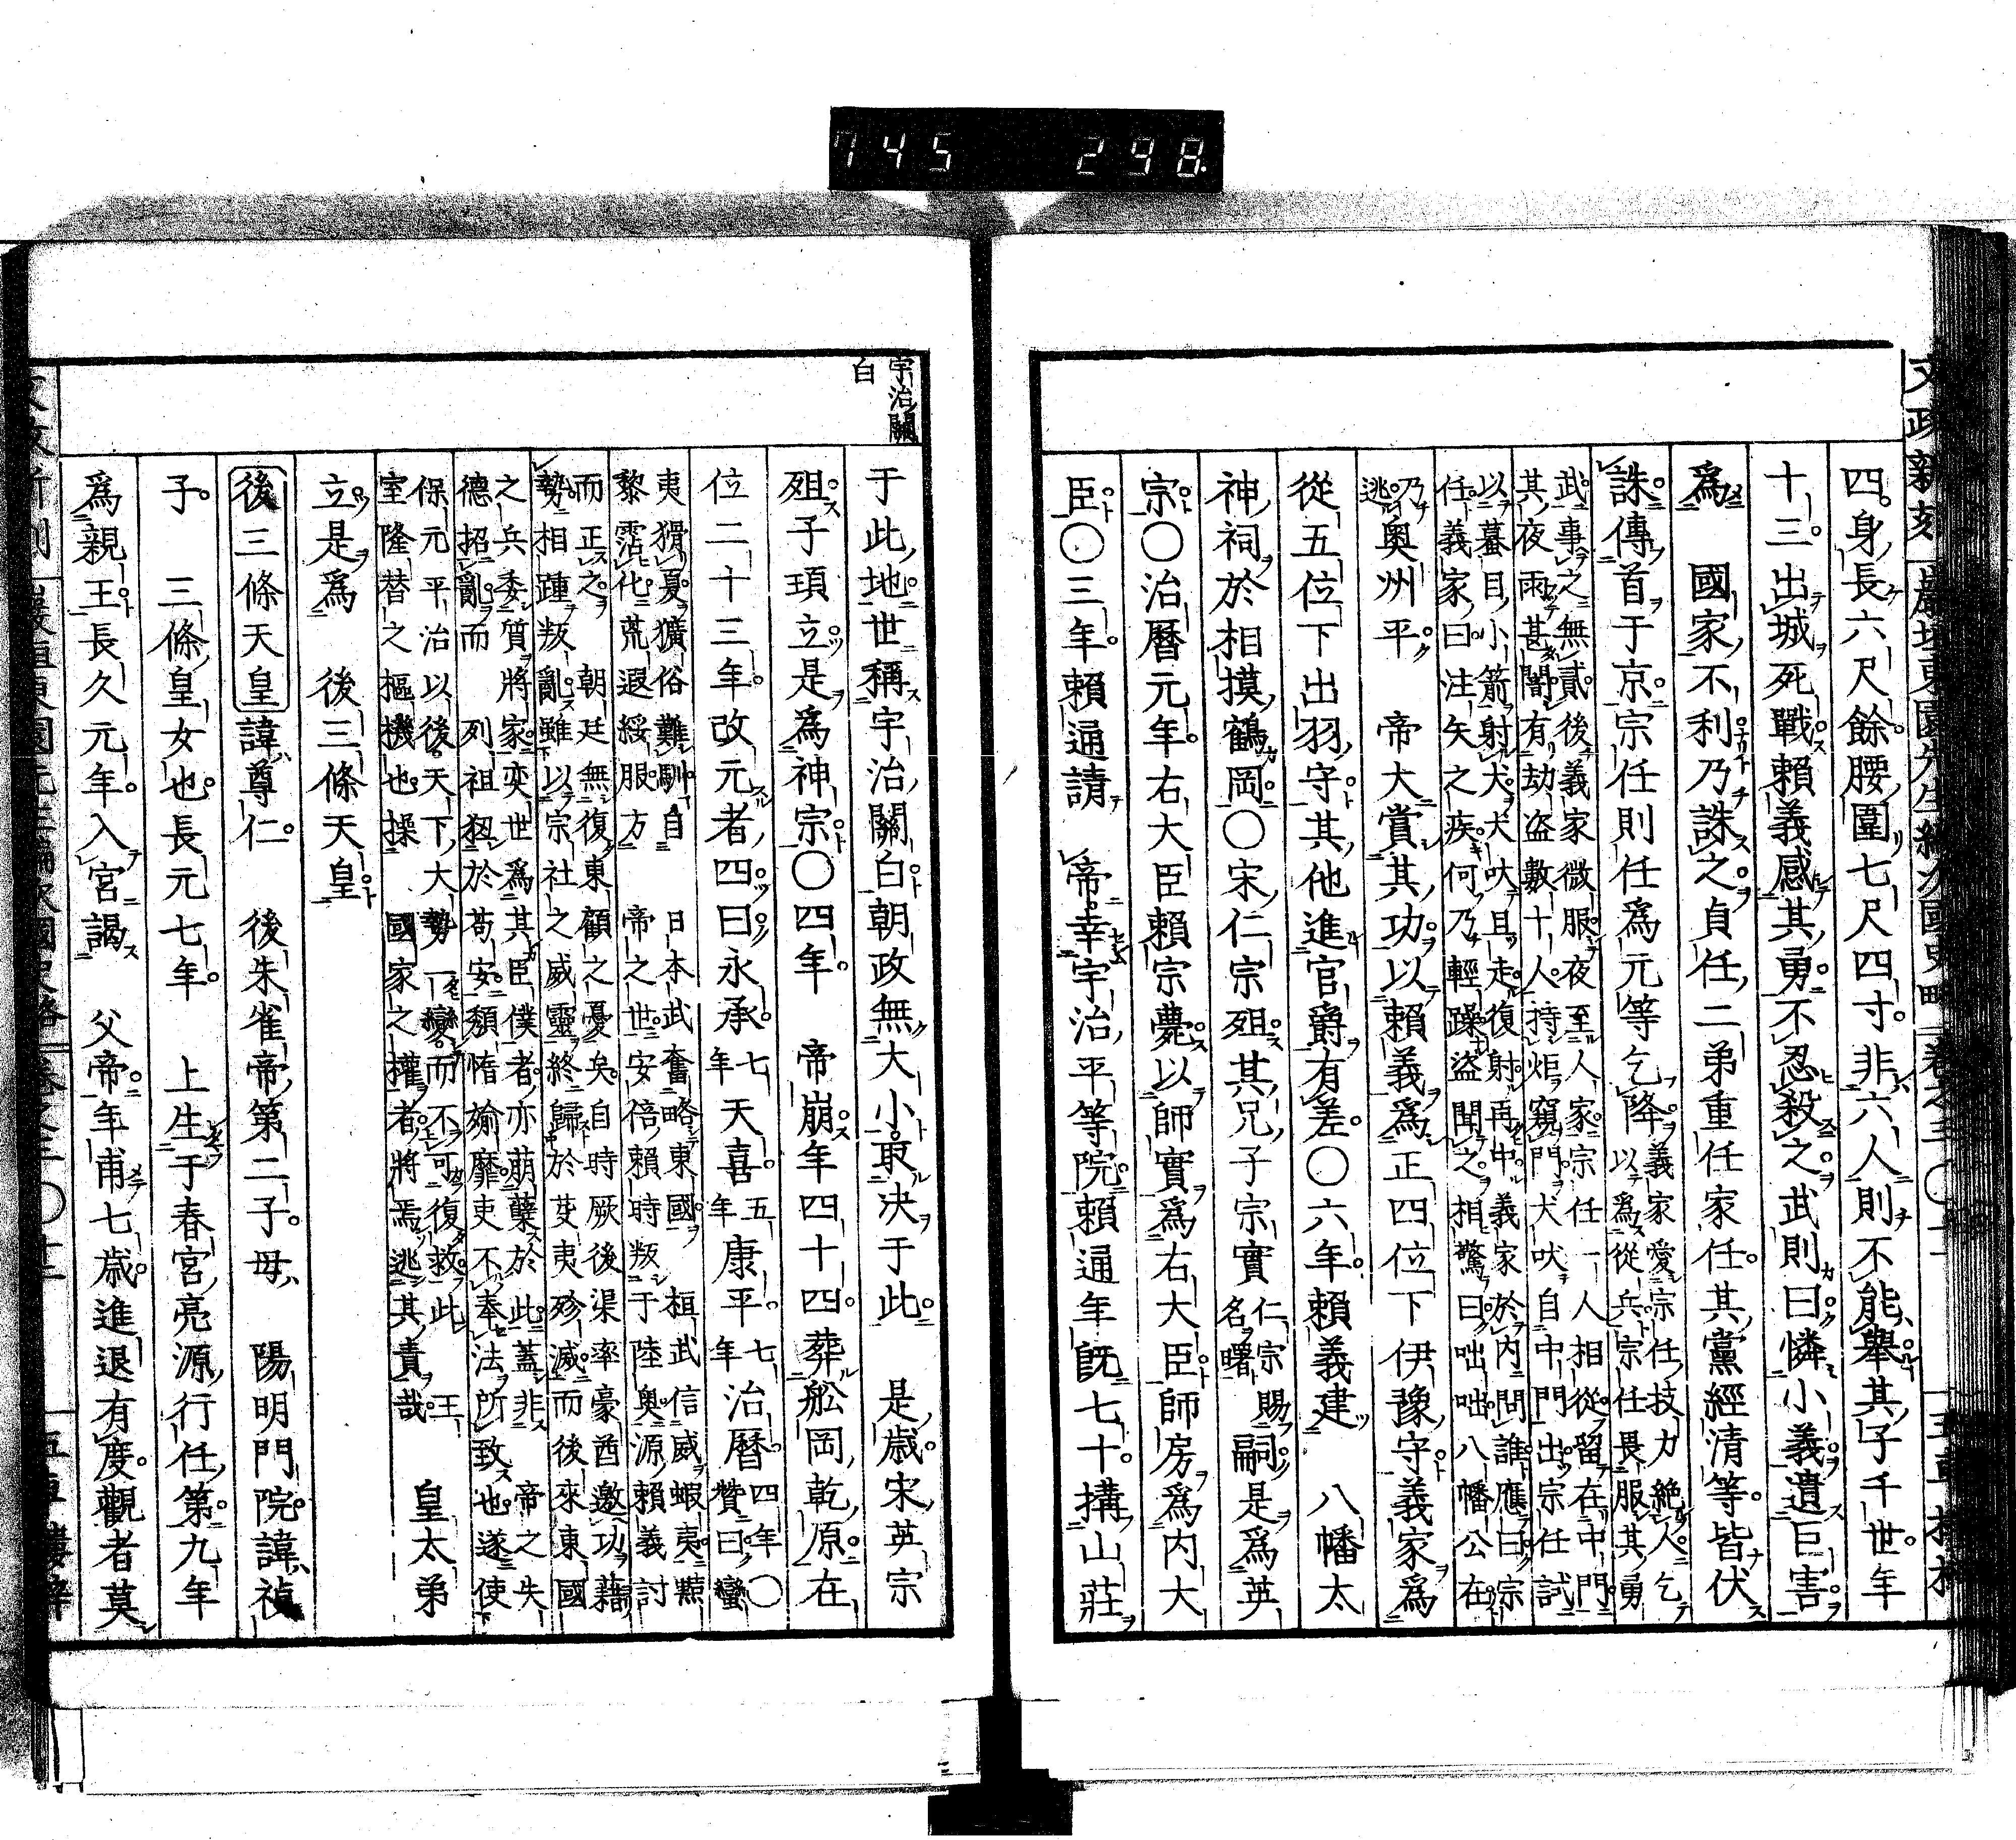 745 298
四身長六尺餘腰圍七尺四寸非六人則不能舉其子千世年
十三出城死戰賴義感其勇不忍殺之武則曰憐小義遺巨害
爲　國家不利乃誅之貞任二弟重任家任其黨經清等皆伏
誅傳首于京宗任則任爲元等乞降義家愛宗任技力絶人乞
以爲從兵宗任畏服其勇
武事之無貳後義家微服夜至人家宗任一人相從留在中門
其夜雨甚闇有劫盗數十人持炬窺門犬吠自中門出宗任試
以蟇目小箭射犬犬吠且走復射再中義家於内問誰應曰宗
任義家曰注矢之疾何乃輕躁盗聞之相驚曰咄咄八幡公在
乃逃奧州平　帝大賞其功以賴義爲正四位下伊豫守義家爲
從五位下出羽守其他進官爵有差〇六年賴義建　八幡太
神祠於相摸鶴岡〇宋仁宗殂其兄子宗實仁宗賜名曙嗣是爲英
宗〇治曆元年右大臣賴宗薨以師實爲右大臣師房爲内大
臣〇三年賴通請　帝幸宇治平等院賴通年既七十搆山莊
宇治關白
于此地世稱宇治關白朝政無大小取決于此　是歲宋英宗
殂子頊立是爲神宗〇四年　帝崩年四十四葬舩岡乾原在
位二十三年改元者四曰永承七年天喜五年康平七年治曆四年〇贊曰蠻
夷猾夏獷俗難馴自　日本武奮略東國　桓武信威蝦夷黠
黎霑化荒遐綏服方　帝之世安倍賴時叛于陸奧源賴義討
而正之　朝廷無復東顧之憂矣自時厥後渠率豪酋邀功藉
勢相踵叛亂雖以宗社之威靈終歸於芟夷殄滅而後來東國
之兵委質將家奕世爲其臣僕者亦萌蘖於此蓋非　帝之失
德招亂而　列祖狃於苟安頽惰婾靡吏不奉法所致也遂使
保元平治以後天下大勢一變而不可復救此　王
室隆替之樞機也操　國家之權者將焉逃其責哉　皇太弟
立是爲　後三條天皇
後三條天皇諱尊仁　後朱雀帝第二子母　陽明門院諱禎
子　三條皇女也長元七年　上生于春宮亮源行任第九年
爲親王長久元年入宮謁　父帝年甫七歲進退有度觀者莫